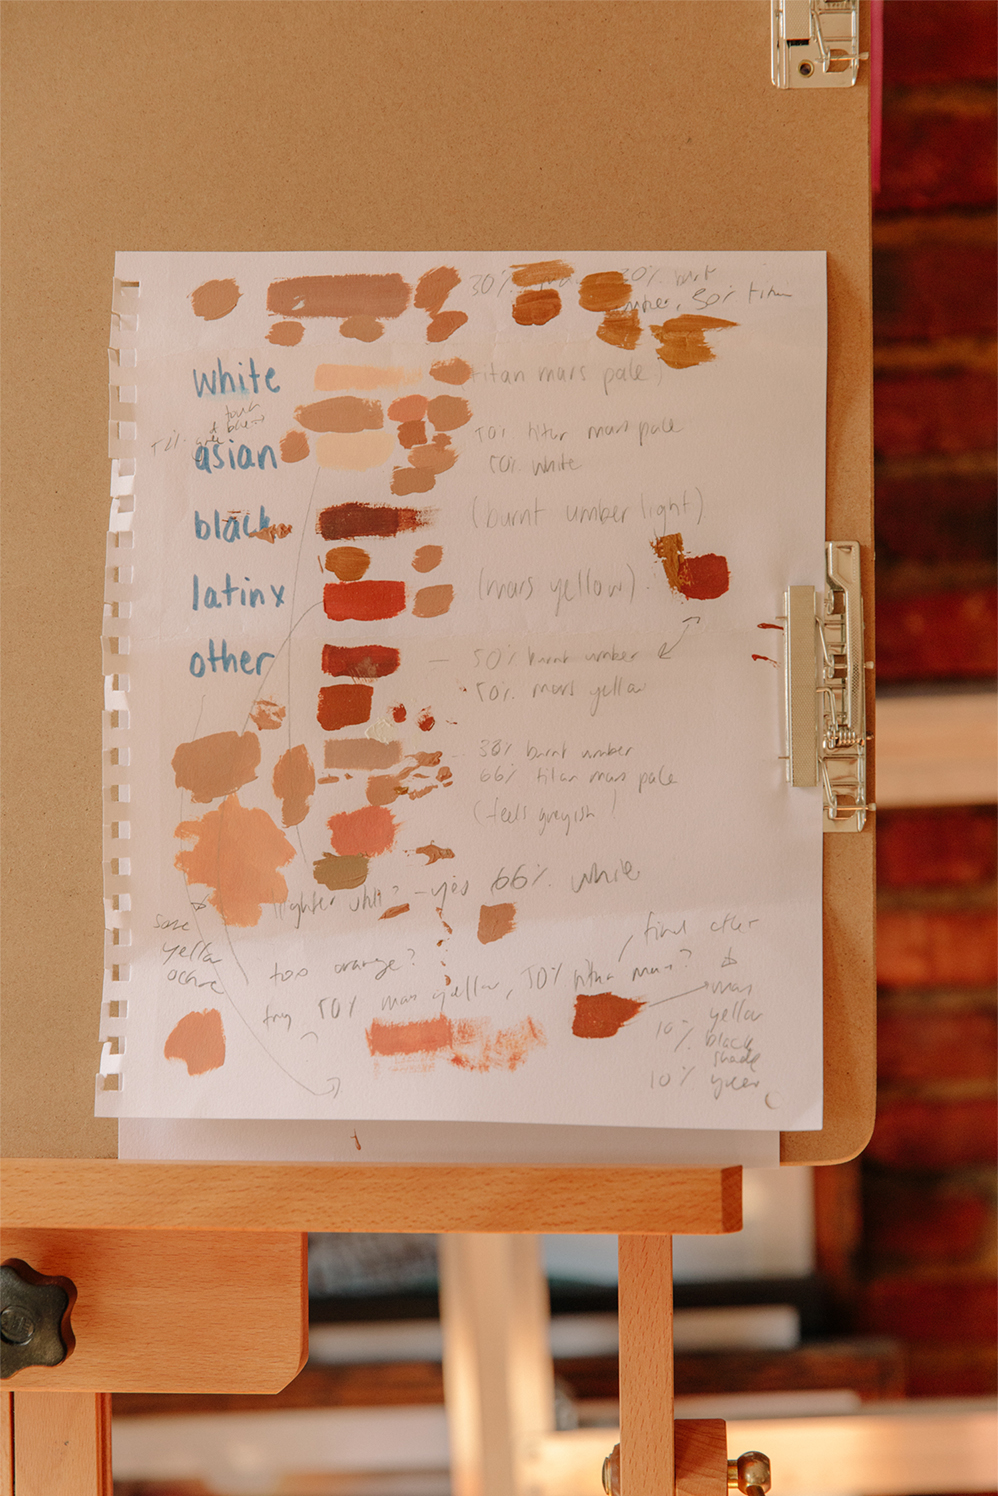 30%
20% burnt
umber, 50% titan
white
titan mars pale)
touch
asian
50% titan mars pale
50% white
black
(burnt umber light)
latinx
(mars yellow)
other
50% burnt umber
50% mars yellow
33% burnt umber
66% titan mars pale
(feels greyish)
lighter white? - yes 66% white
some
yellow
ochre
final other
too orange?
try 50% mars yellow, 50% titan mars?
mars
yellow
10%
% black
shade
10%